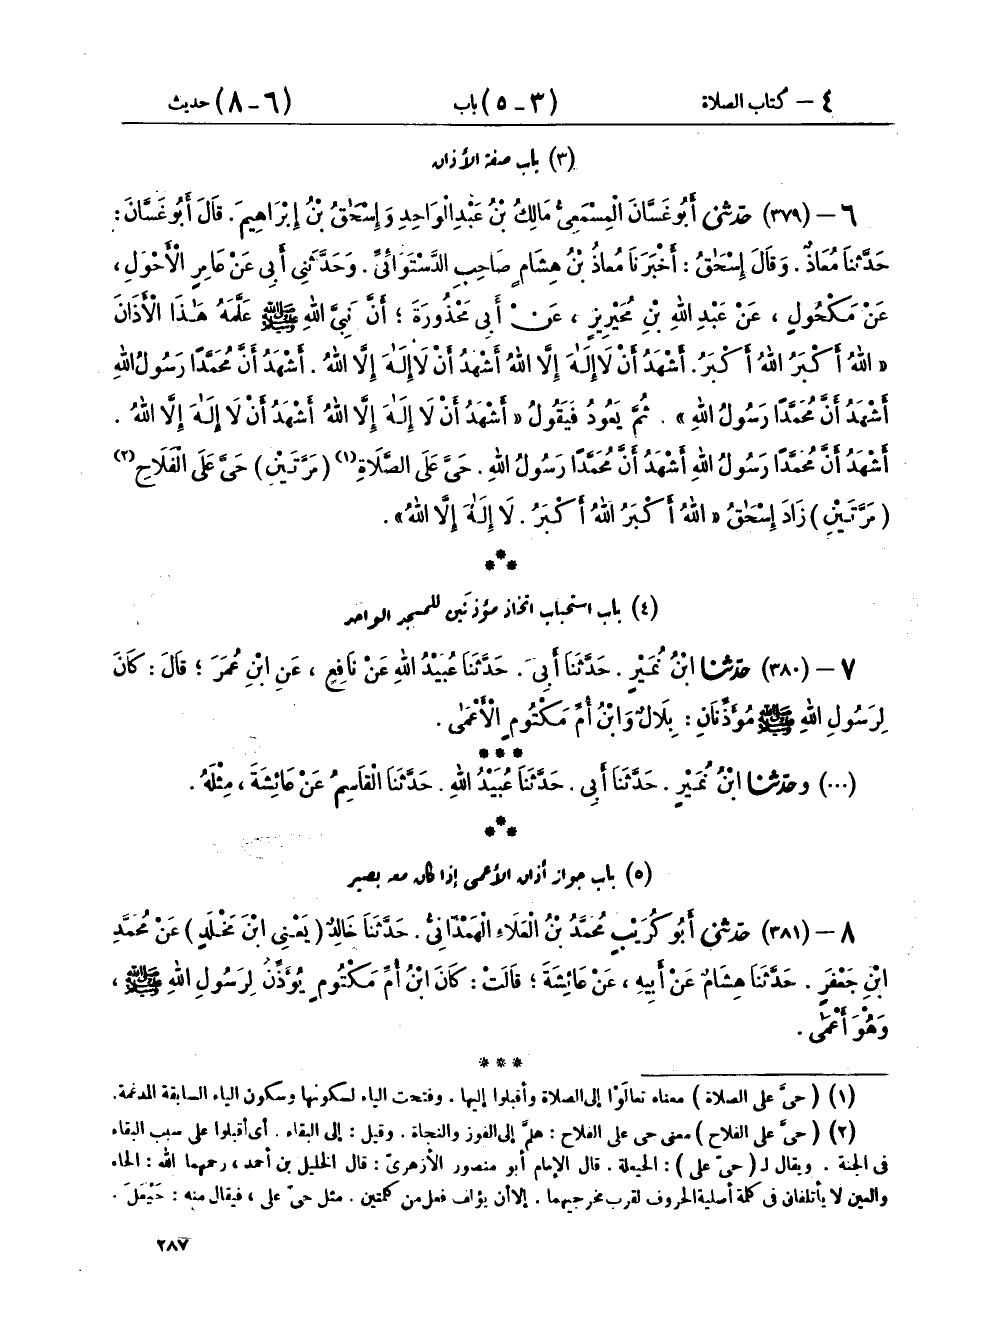 ٤ – كتاب الصلاة (٣ – ٥) باب (٦ – ٨) حديث
(٣) باب صفة الأذان
٦ – (٣٧٩) حَدَّثَنِي أَبُو غَسَّانَ الْمِسْمَعِيُّ مَالِكُ بْنُ عَبْدِ الْوَاحِدِ وَإِسْحَاقُ بْنُ إِبْرَاهِيمَ. قَالَ أَبُو غَسَّانَ:
حَدَّثَنَا مُعَاذٌ. وَقَالَ إِسْحَاقُ: أَخْبَرَنَا مُعَاذُ بْنُ هِشَامٍ صَاحِبِ الدَّسْتَوَائِيِّ. وَحَدَّثَنِي أَبِي عَنْ عَامِرٍ الْأَحْوَلِ،
عَنْ مَكْحُولٍ، عَنْ عَبْدِ اللهِ بْنِ مُحَيْرِيزٍ، عَنْ أَبِي مَحْذُورَةَ؛ أَنَّ نَبِيَّ اللهِ ﷺ عَلَّمَهُ هَٰذَا الْأَذَانَ
« اللهُ أَكْبَرُ اللهُ أَكْبَرُ. أَشْهَدُ أَنْ لَا إِلَٰهَ إِلَّا اللهُ أَشْهَدُ أَنْ لَا إِلَٰهَ إِلَّا اللهُ. أَشْهَدُ أَنَّ مُحَمَّدًا رَسُولُ اللهِ
أَشْهَدُ أَنَّ مُحَمَّدًا رَسُولُ اللهِ ». ثُمَّ يَعُودُ فَيَقُولُ « أَشْهَدُ أَنْ لَا إِلَٰهَ إِلَّا اللهُ أَشْهَدُ أَنْ لَا إِلَٰهَ إِلَّا اللهُ.
أَشْهَدُ أَنَّ مُحَمَّدًا رَسُولُ اللهِ أَشْهَدُ أَنَّ مُحَمَّدًا رَسُولُ اللهِ. حَيَّ عَلَى الصَّلَاةِ(١) (مَرَّتَيْنِ) حَيَّ عَلَى الْفَلَاحِ(٢)
(مَرَّتَيْنِ) زَادَ إِسْحَاقُ « اللهُ أَكْبَرُ اللهُ أَكْبَرُ. لَا إِلَٰهَ إِلَّا اللهُ».
(٤) باب استحباب اتخاذ مؤذنين للمسجد الواحد
٧ – (٣٨٠) حَدَّثَنَا ابْنُ نُمَيْرٍ. حَدَّثَنَا أَبِي. حَدَّثَنَا عُبَيْدُ اللهِ عَنْ نَافِعٍ، عَنِ ابْنِ عُمَرَ؛ قَالَ: كَانَ
لِرَسُولِ اللهِ ﷺ مُؤَذِّنَانِ: بِلَالٌ وَابْنُ أُمِّ مَكْتُومٍ الْأَعْمَىٰ.
(...) وحَدَّثَنَا ابْنُ نُمَيْرٍ. حَدَّثَنَا أَبِي. حَدَّثَنَا عُبَيْدُ اللهِ. حَدَّثَنَا الْقَاسِمُ عَنْ عَائِشَةَ، مِثْلَهُ.
(٥) باب جواز أذان الأعمى إذا كان معه بصير
٨ – (٣٨١) حَدَّثَنِي أَبُو كُرَيْبٍ مُحَمَّدُ بْنُ الْعَلَاءِ الْهَمْدَانِيُّ. حَدَّثَنَا خَالِدٌ (يَعْنِي ابْنَ مَخْلَدٍ) عَنْ مُحَمَّدِ
ابْنِ جَعْفَرٍ. حَدَّثَنَا هِشَامٌ عَنْ أَبِيهِ، عَنْ عَائِشَةَ؛ قَالَتْ: كَانَ ابْنُ أُمِّ مَكْتُومٍ يُؤَذِّنُ لِرَسُولِ اللهِ ﷺ،
وَهُوَ أَعْمَىٰ.
(١) (حيّ على الصلاة) معناه تعالَوْا إلى الصلاة وأقبلوا إليها. وفتحت الياء لسكونها وسكون الياء السابقة المدغمة.
(٢) (حيّ على الفلاح) معنى حى على الفلاح: هلمّ إلى الفوز والنجاة. وقيل: إلى البقاء. أى أقبلوا على سبب البقاء
فى الجنة. ويقال لـ (حىّ على): الحيعلة. قال الإمام أبو منصور الأزهرىّ: قال الخليل بن أحمد، رحمهما الله: الحاء
والعين لا يأتلفان فى كلمة أصلية الحروف لقرب مخرجيهما. إلا أن يؤلف فعل من كلمتين. مثل حىّ على، فيقال منه: حَيْعَلَ.
٢٨٧